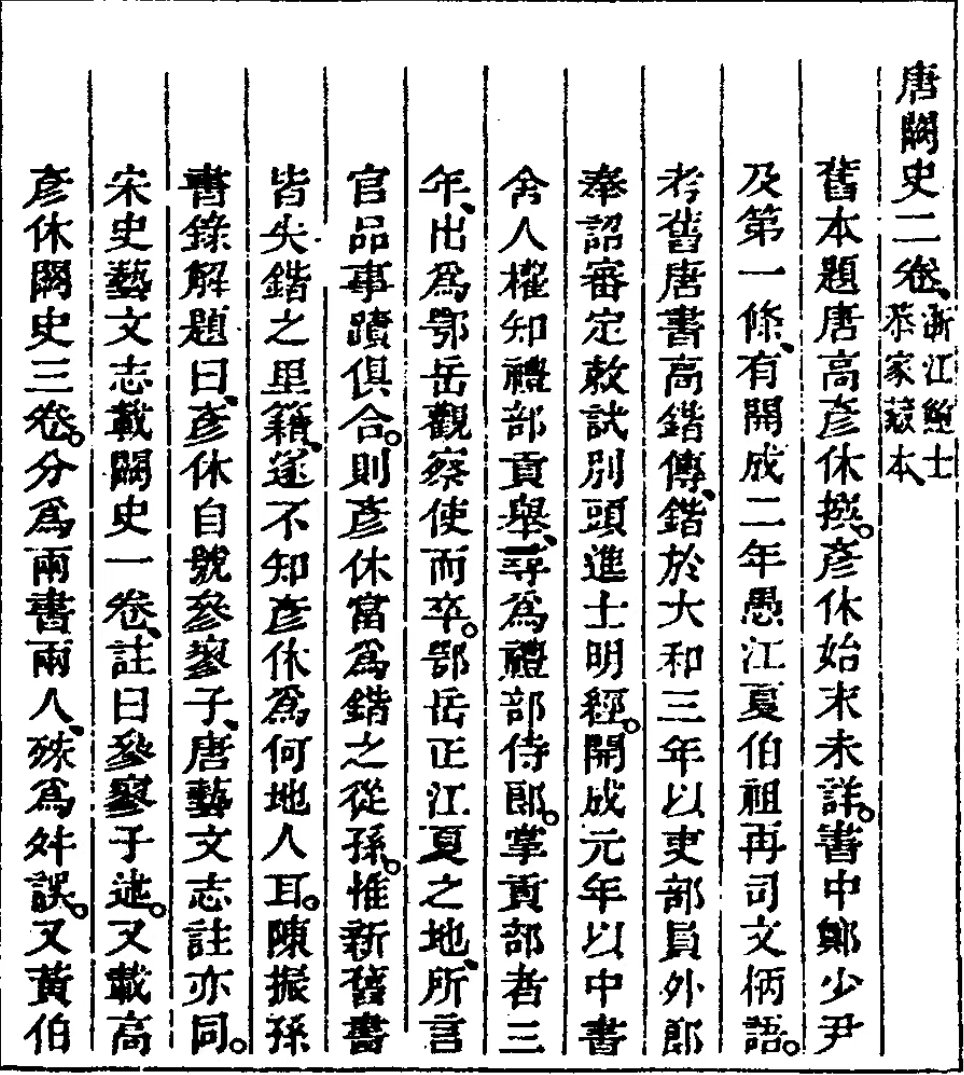 唐闕史二卷、浙江鮑士恭家藏本、
舊本題唐高彥休撰。彥休始末未詳。書中鄭少尹
及第一條、有開成二年愚江夏伯祖再司文柄語。
考舊唐書高鍇傳、鍇於大和三年以吏部員外郎
奉詔審定敕試別頭進士明經。開成元年以中書
舍人權知禮部貢舉、尋為禮部侍郎。掌貢部者三
年、出為鄂岳觀察使而卒。鄂岳正江夏之地、所言
官品事蹟俱合。則彥休當為鍇之從孫。惟新舊書
皆失鍇之里籍、遂不知彥休為何地人耳。陳振孫
書錄解題曰、彥休自號參寥子、唐藝文志註亦同。
宋史藝文志載闕史一卷、註曰參寥子述。又載高
彥休闕史三卷。分為兩書兩人、殊為舛誤。又黃伯